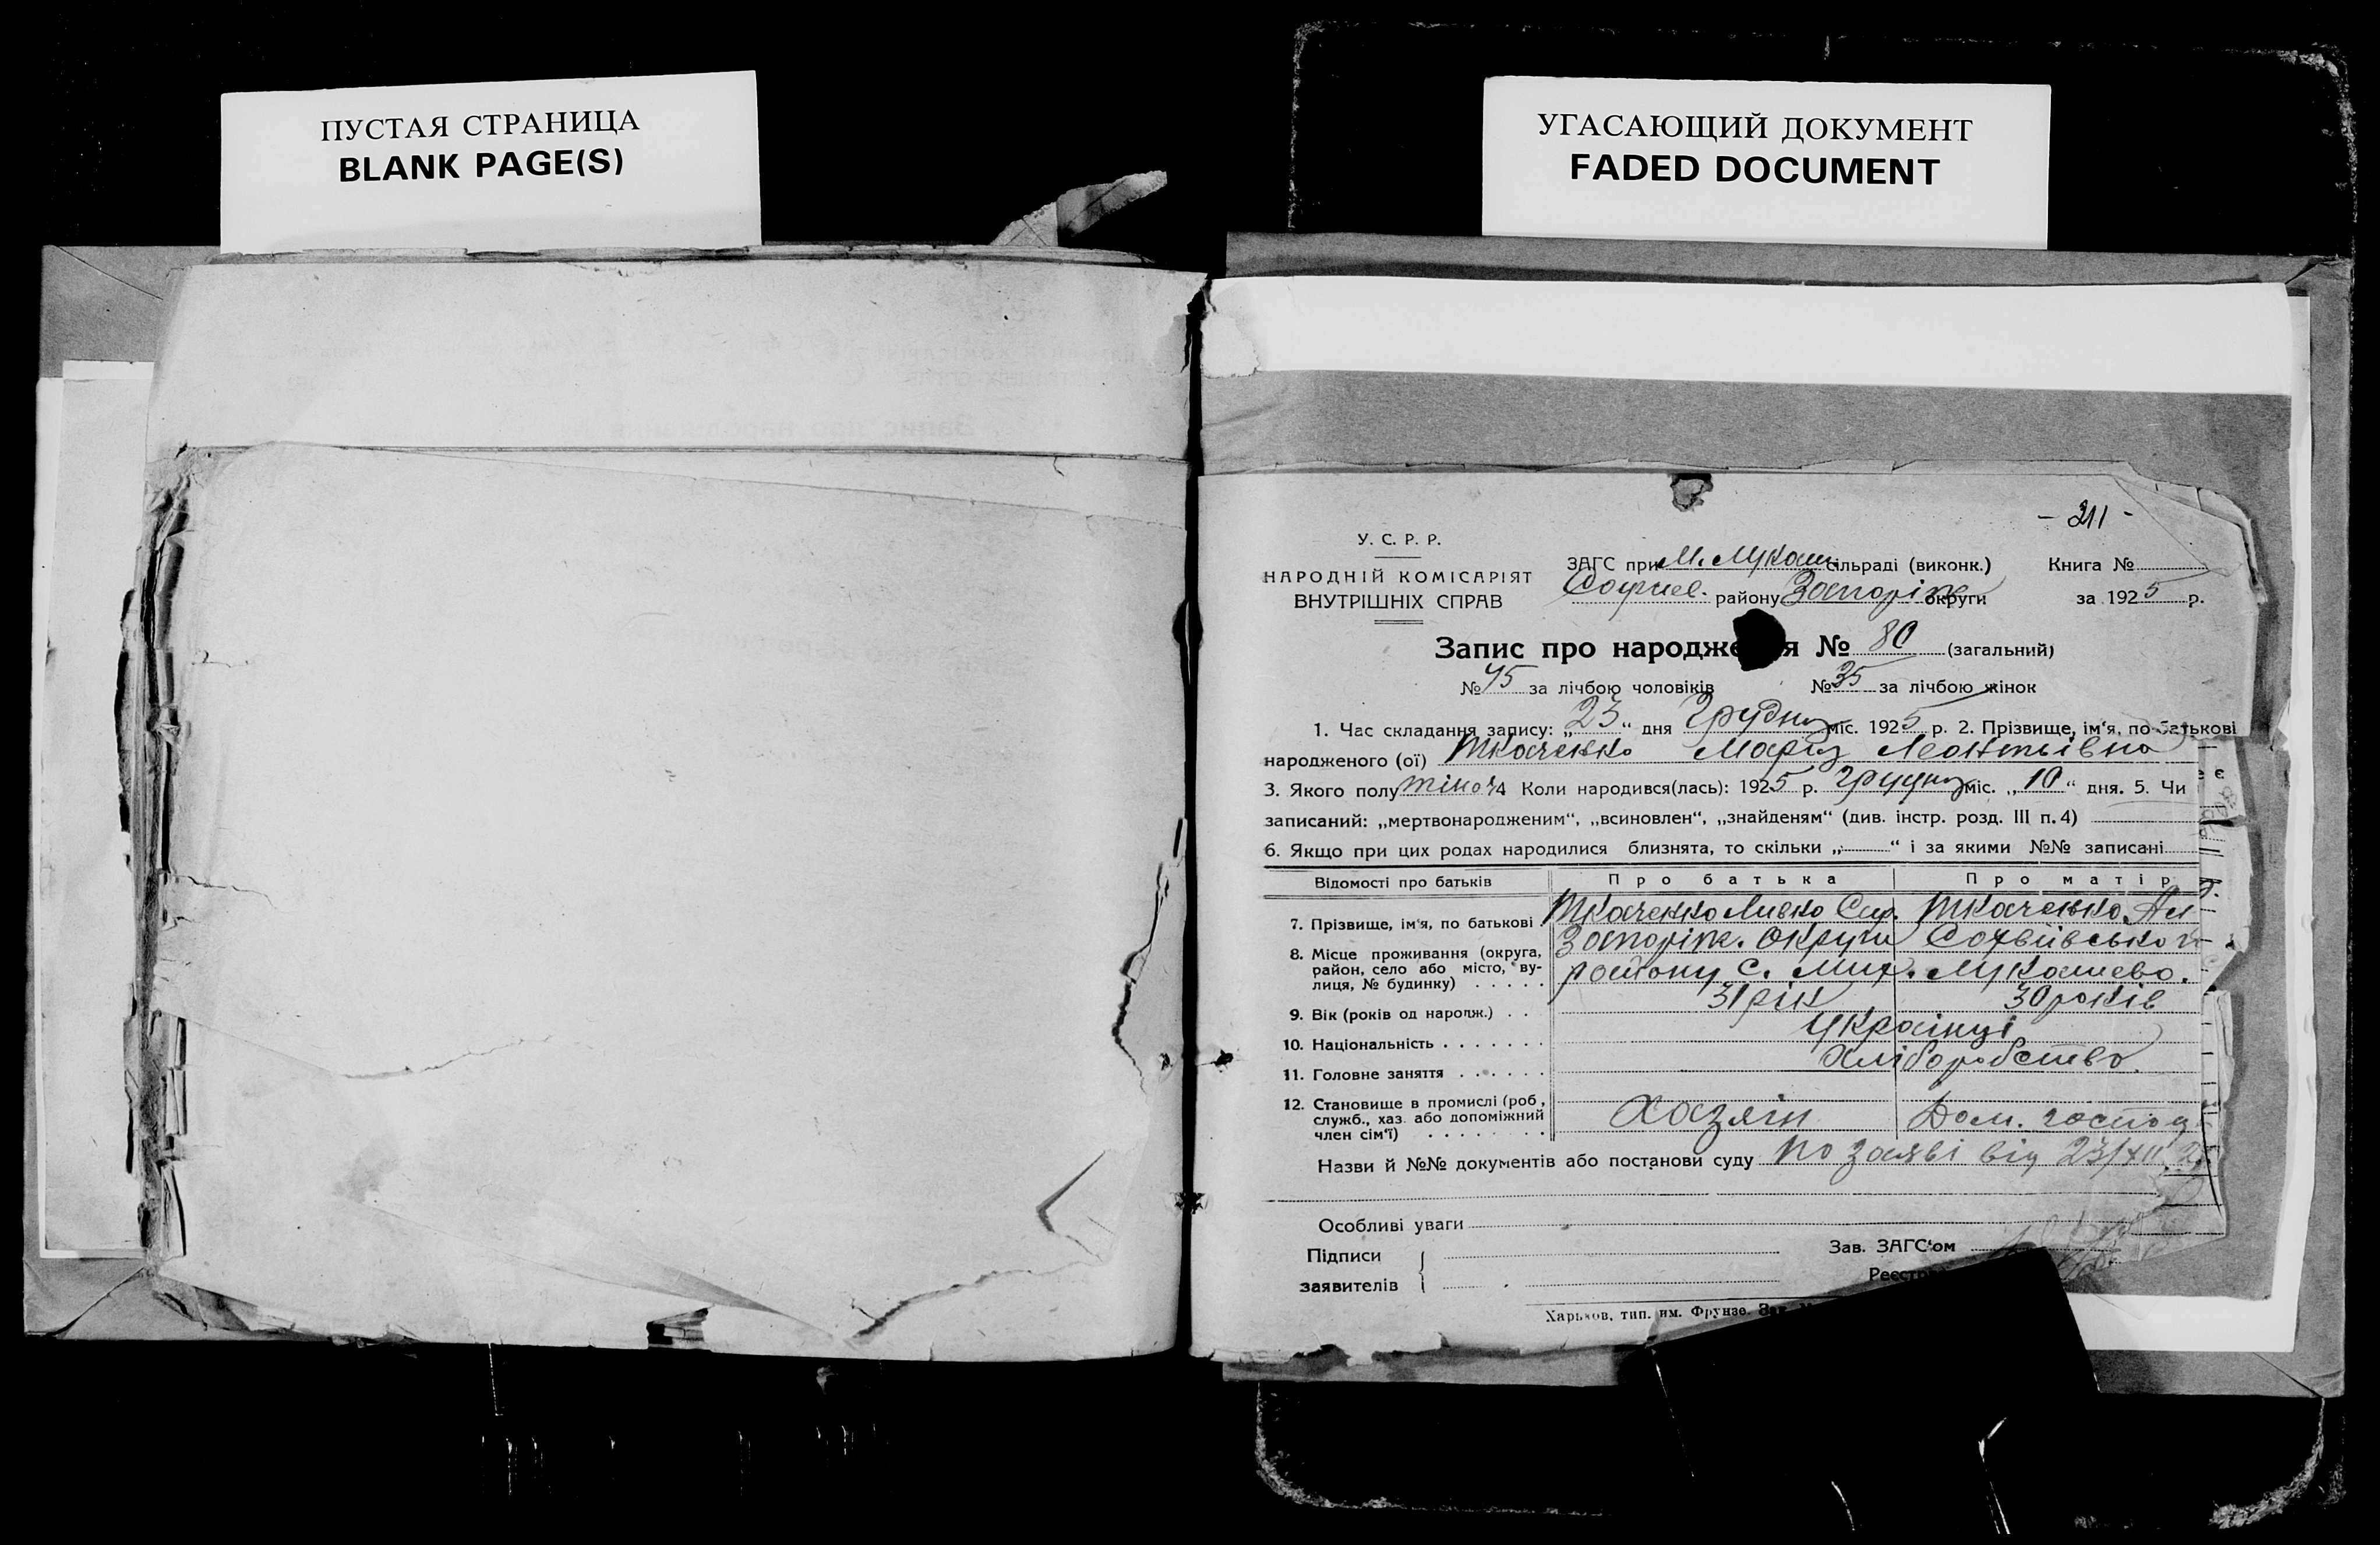 ПУСТАЯ СТРАНИЦА
BLANK PAGE(S)
УГАСАЮЩИЙ ДОКУМЕНТ
FADED DOCUMENT
- 211 -
У. С. Р. Р.
НАРОДНІЙ КОМІСАРІЯТ
ВНУТРІШНІХ СПРАВ
ЗАГС при М. Лукаш. сільраді (виконк.)
Софиев. району Запоріж. округи
Книга №
за 1925 р.
Запис про народже я № 80 (загальний)
№ 45 за лічбою чоловіків № 35 за лічбою жінок
1. Час складання запису: „23“ дня Грудня міс. 1925 р. 2. Прізвище, ім‘я, по-батькові
народженого (ої) Ткаченко Марія Леонтьівна
3. Якого полу жіноч 4 Коли народився(лась): 1925 р. Грудня міс. „10“ дня. 5. Чи
записаний: „мертвонародженим“, „всиновлен“, „знайденям“ (див. інстр. розд. III п. 4)
6. Якщо при цих родах народилися близнята, то скільки „ “ і за якими №№ записані
Відомості про батьків Про батька Про матір
7. Прізвище, ім‘я, по батькові Ткаченко Левко Ткаченко
8. Місце проживання (округа, район, село або місто, вулиця, № будинку) Запоріж. Округи Софиівського
району с. Мих. Лукашево.
9. Вік (років од народж.) 31 рік 30 років
10. Національність Українці
11. Головне заняття Хліборобство.
12. Становище в промислі (роб., служб., хаз. або допоміжний член сім‘ї) Хазяін Дом. господ.
Назви й №№ документів або постанови суду по заяві від 23/XII
Особливі уваги
Підписи
заявителів
Зав. ЗАГС‘ом
Харьков, тип. им. Фрунзе.